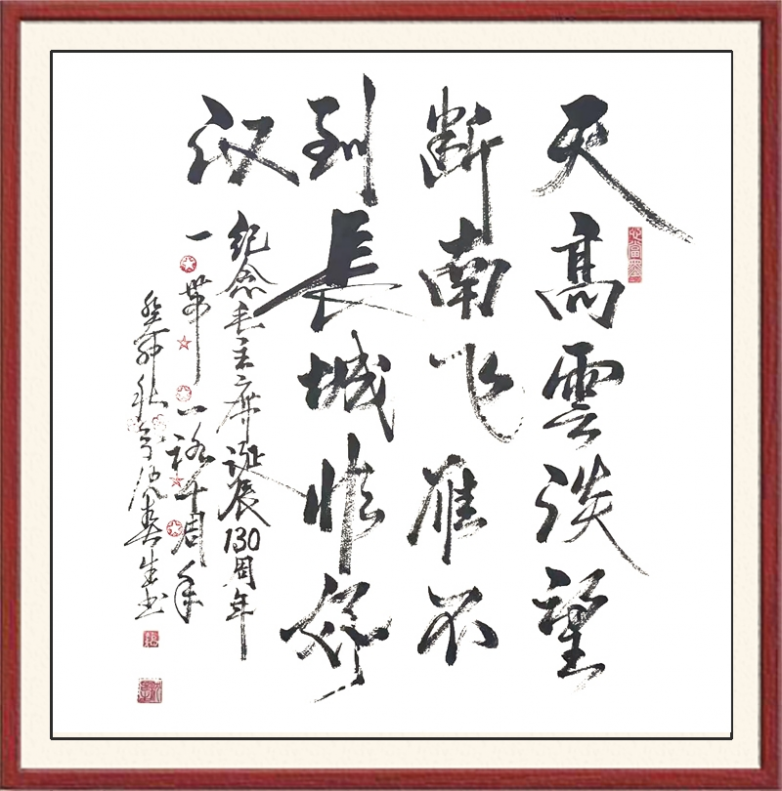 天高雲淡望
断南飞雁不
到長城非好
汉
纪念毛主席诞辰130周年
一带一路十周年
癸卯秋 生书